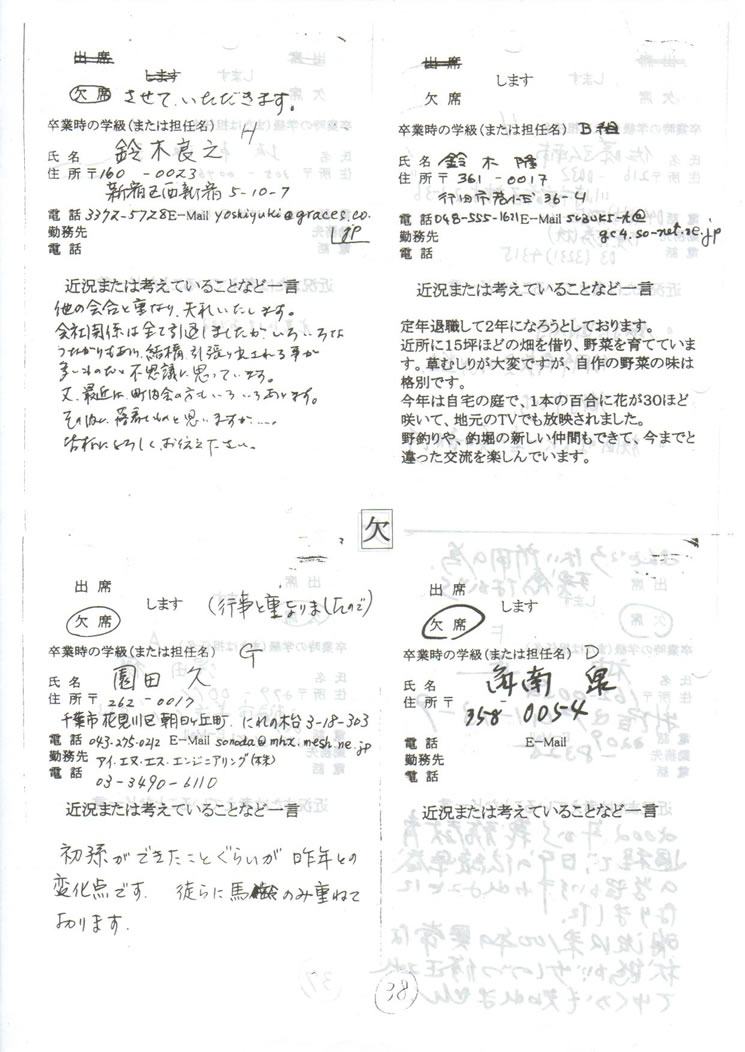 出席
します
欠席 させていただきます。
卒業時の学級(または担任名) H
氏 名 鈴木良之
住 所 〒160-0023
新宿区西新宿 5-10-7
電 話 3372-5728 E-Mail yoshiyuki@graces.co.
jp
勤務先
電 話
近況または考えていることなど一言
他の会合と重なり、失礼いたします。
会社関係は全て引退しましたがいろいろな
つながりもあり、結構引張り出される事が
多いものだと不思議に思っています。
又、最近は、町内会の方もいろいろあります。
その内に落着くものと思いますが……
皆様によろしくお伝え下さい。
出席
します
欠席
卒業時の学級(または担任名) B組
氏 名 鈴木 隆
住 所 〒361-0017
行田市 36-4
電 話 048-555-1621 E-Mail
gc4.so-net.ne.jp
勤務先
電 話
近況または考えていることなど一言
定年退職して2年になろうとしております。
近所に15坪ほどの畑を借り、野菜を育てていま
す。草むしりが大変ですが、自作の野菜の味は
格別です。
今年は自宅の庭で、1本の百合に花が30ほど
咲いて、地元のTVでも放映されました。
野釣りや、釣堀の新しい仲間もできて、今までと
違った交流を楽しんでいます。
欠
出席
します (行事と重なりましたので)
欠席
卒業時の学級(または担任名) G
氏 名 園田 久
住 所 〒262-0017
千葉市花見川区朝日ヶ丘町 にれの木台 3-18-303
電 話 043-275-0212 E-Mail sonoda@mhx.mesh.ne.jp
勤務先 アイ.エヌ.エス.エンジニアリング(株)
電 話 03-3490-6110
近況または考えていることなど一言
初孫ができたことぐらいが 昨年との
変化点です. 徒らに馬齢のみ重ねて
おります.
出席
します
欠席
卒業時の学級(または担任名) D
氏 名
住 所 〒358-0054
電 話 E-Mail
勤務先
電 話
近況または考えていることなど一言
38